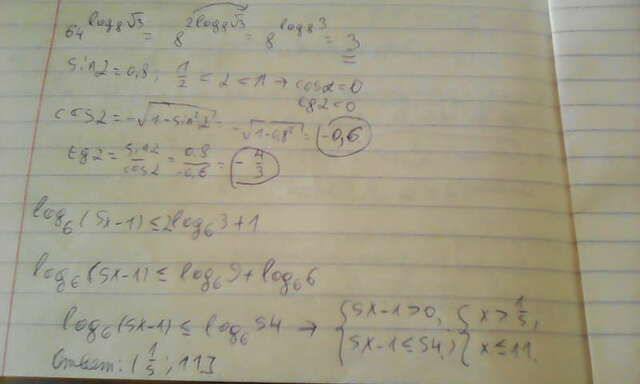 64^{log_8 √3} = 8^{2log_8 √3} = 8^{log_8 3} = 3
sin2 = 0,8; π/2 < 2 < π → cos2 < 0
tg2 < 0
cos2 = -√(1-sin²2) = -√(1-0,8²) = -0,6
tg2 = sin2/cos2 = 0,8/-0,6 = -4/3
log_6 (5x-1) ≤ 2log_6 3+1
log_6 (5x-1) ≤ log_6 9 + log_6 6
log_6 (5x-1) ≤ log_6 54 → {5x-1>0, {x>1/5,
{5x-1≤54, {x≤11.
Ответ: (1/5; 11]